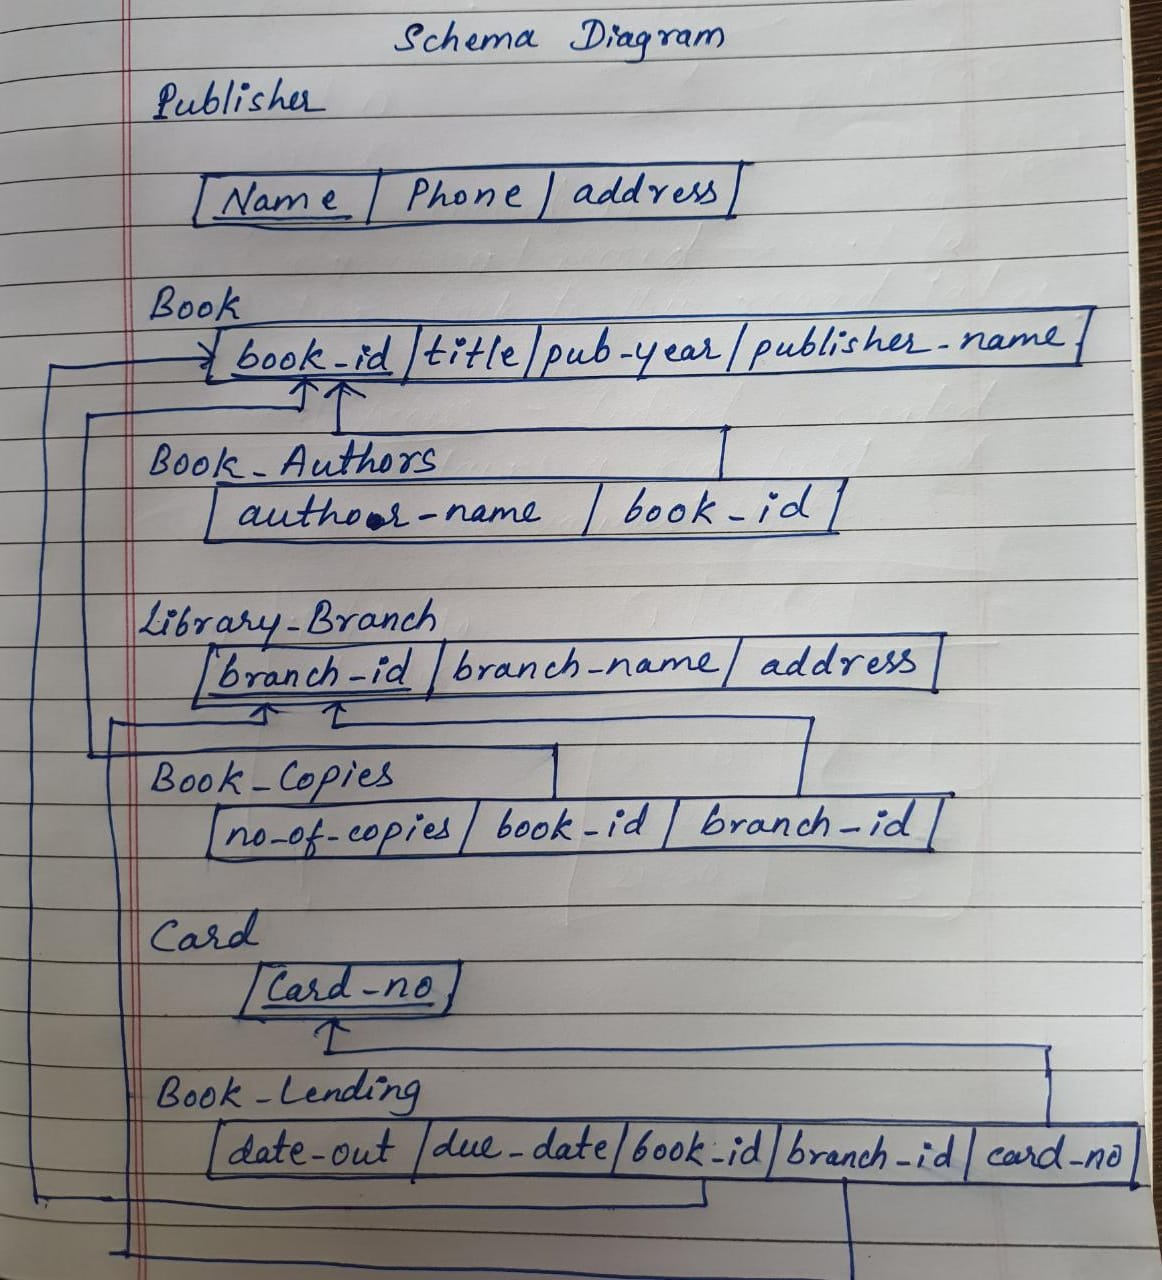 Schema Diagram
Publisher
Name | Phone | address
Book
book_id | title | pub-year | publisher-name
Book_Authors
author-name | book_id
Library-Branch
branch-id | branch-name | address
Book_Copies
no-of-copies | book-id | branch-id
Card
Card-no
Book-Lending
date-out | due-date | book-id | branch-id | card-no